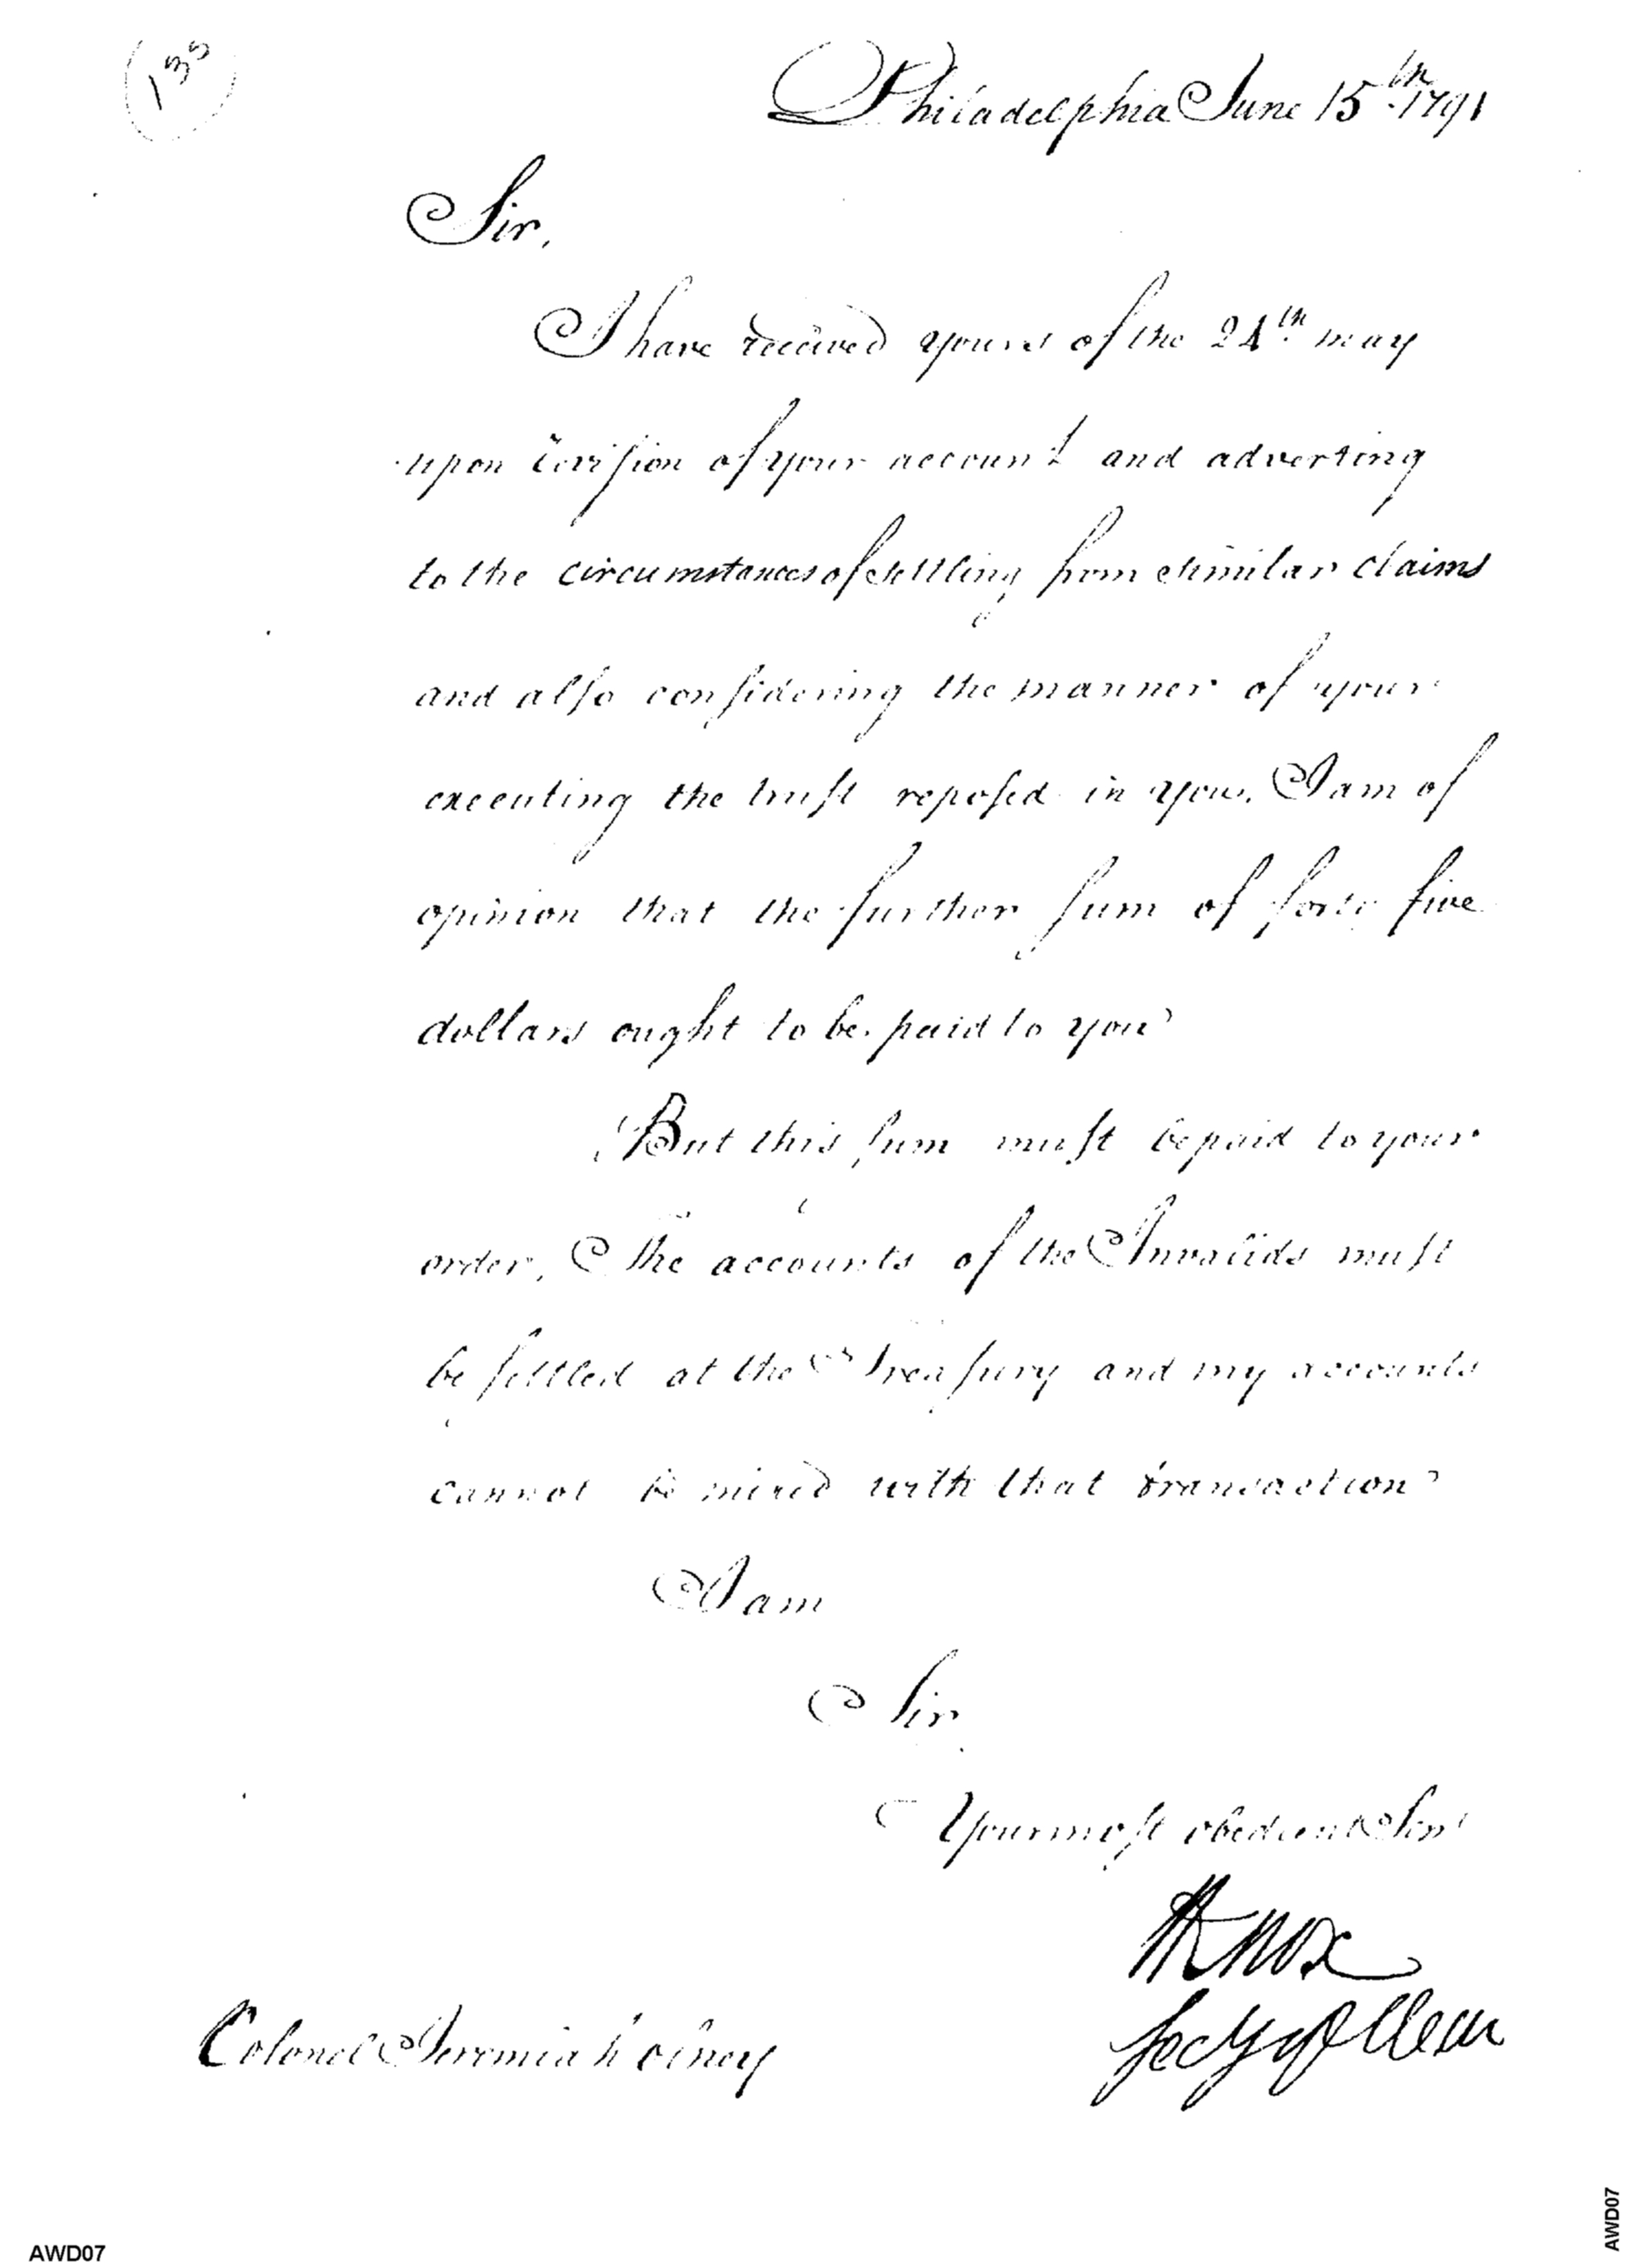 135
Philadelphia June 15th 1791
Sir,
I have received yours of the 24th may
upon revision of your account and adverting
to the circumstances of settling from similar claims
and also considering the manner of your
executing the trust reposed in you. I am of
opinion that the further sum of forty five
dollars ought to be paid to you
But this sum must be paid to your
order. The accounts of the Invalids must
be settled at the Treasury and my accounts
cannot be mixed with that transaction
I am
Sir
Your most obedient Serv
HKnox
Secy of War
Colonel Jeremiah Olney
AWD07
AWD07